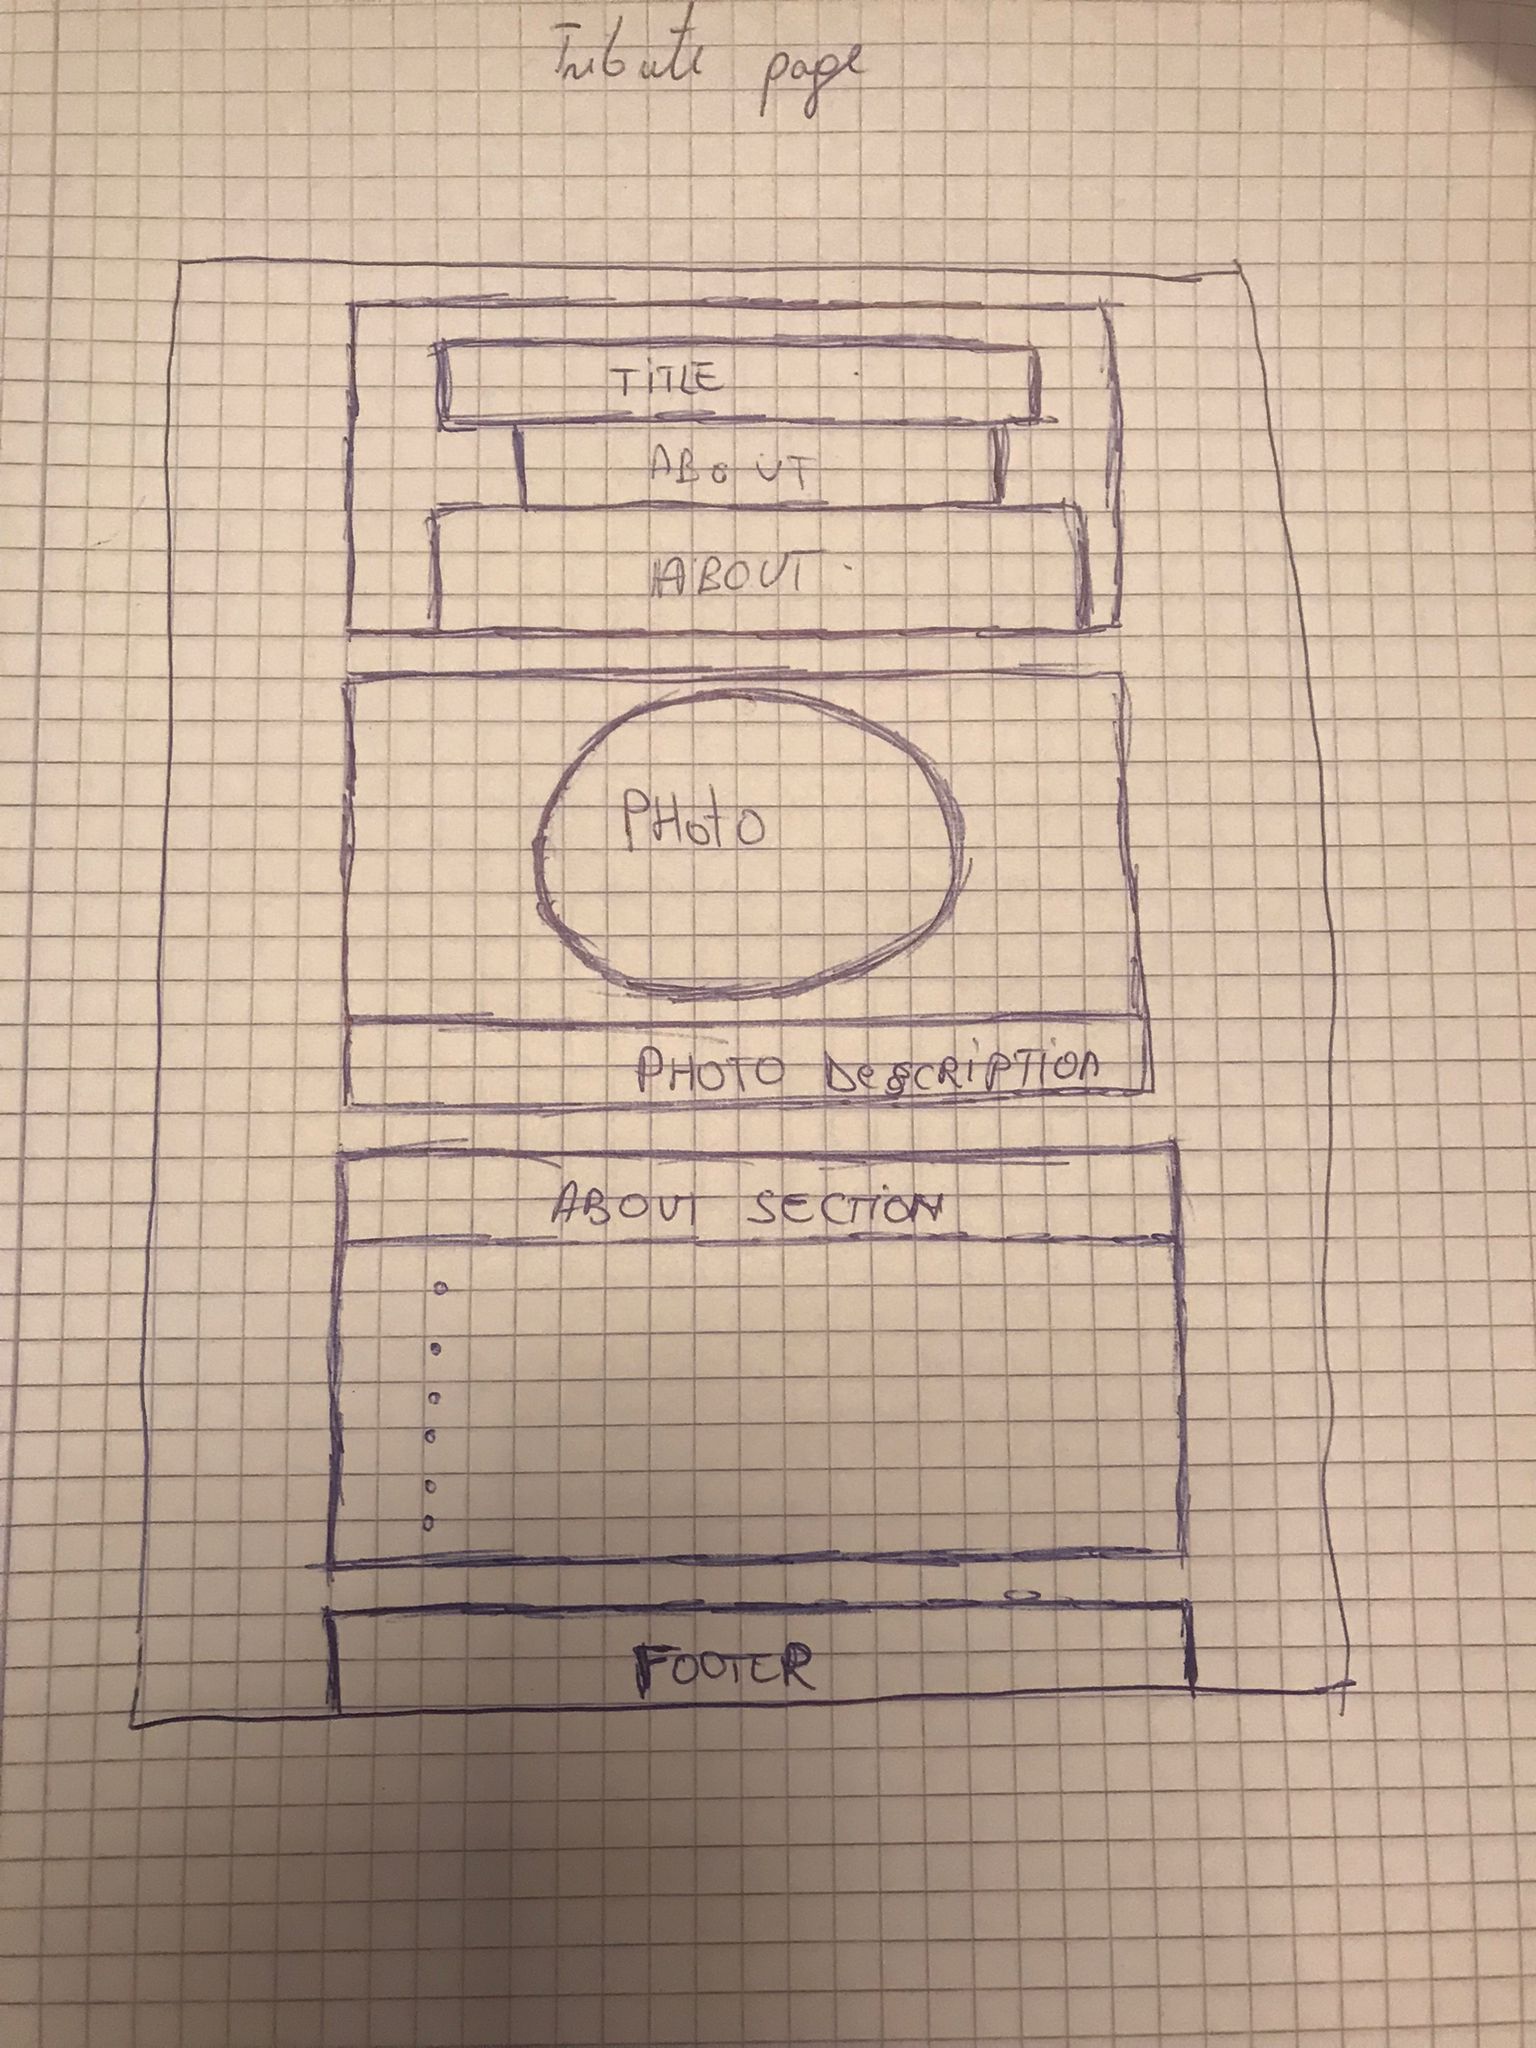 Tribute page
TITLE
ABOUT
ABOUT
PHOTO
PHOTO DESCRIPTION
ABOUT SECTION
FOOTER